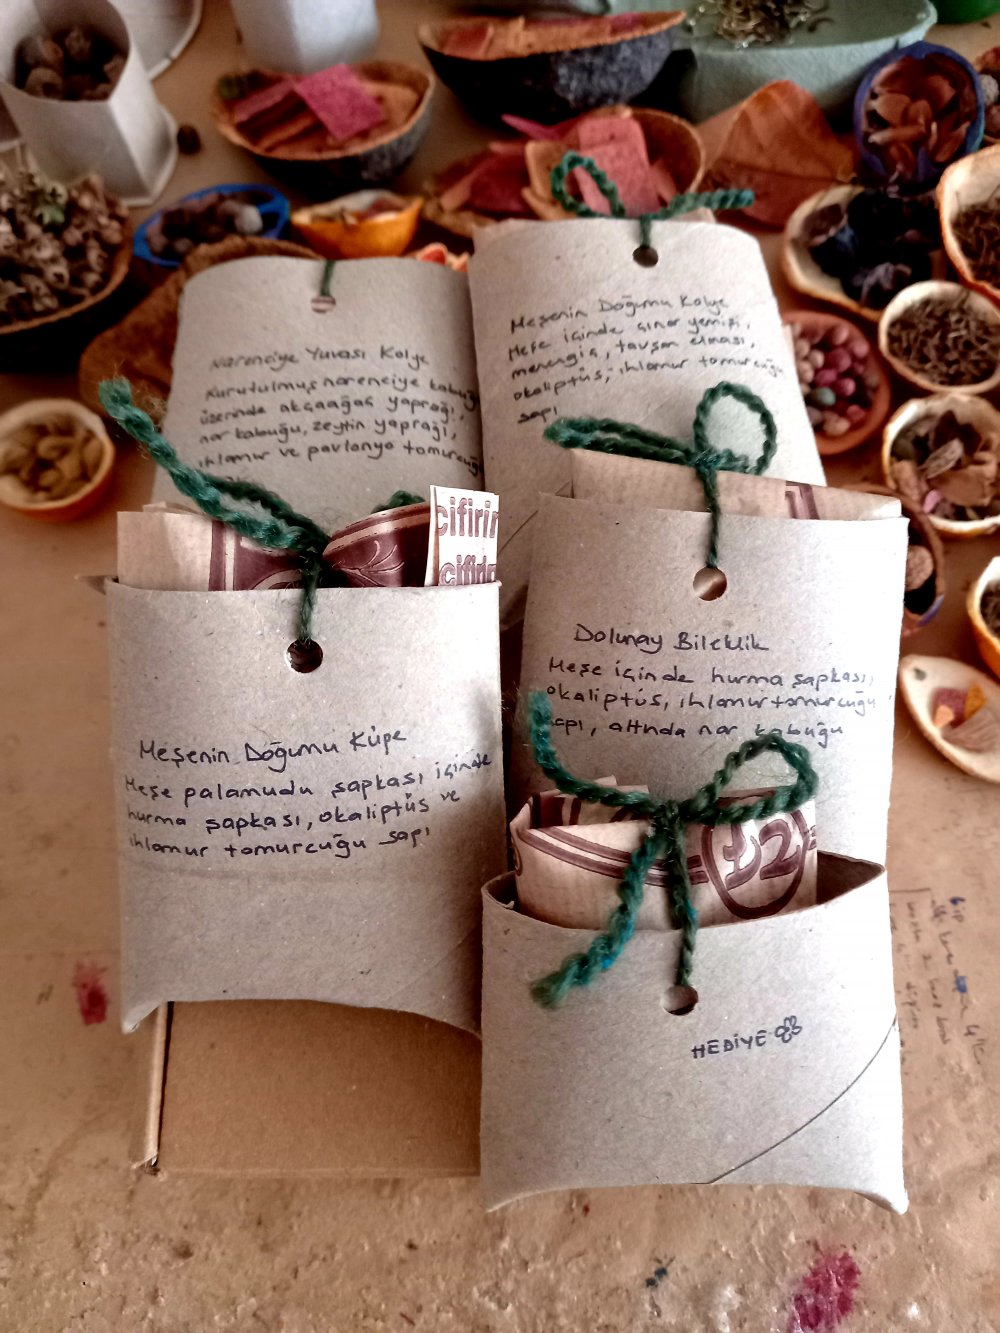 Narenciye Yuvası Kolye
Kurutulmuş narenciye kabuğu
üzerinde akçaağaç yaprağı,
nar kabuğu, zeytin yaprağı,
ıhlamur ve pavlonya tomurcuğu
Meşenin Doğumu Kolye
Meşe içinde çınar yemişi,
menengiç, tavşan elması,
okaliptüs, ıhlamur tomurcuğu
sapı
cifirin
cifirin
Meşenin Doğumu Küpe
Meşe palamudu şapkası içinde
hurma şapkası, okaliptüs ve
ıhlamur tomurcuğu sapı
Dolunay Bileklik
Meşe içinde hurma şapkası,
okaliptüs, ıhlamur tomurcuğu
sapı, altında nar kabuğu
HEDİYE